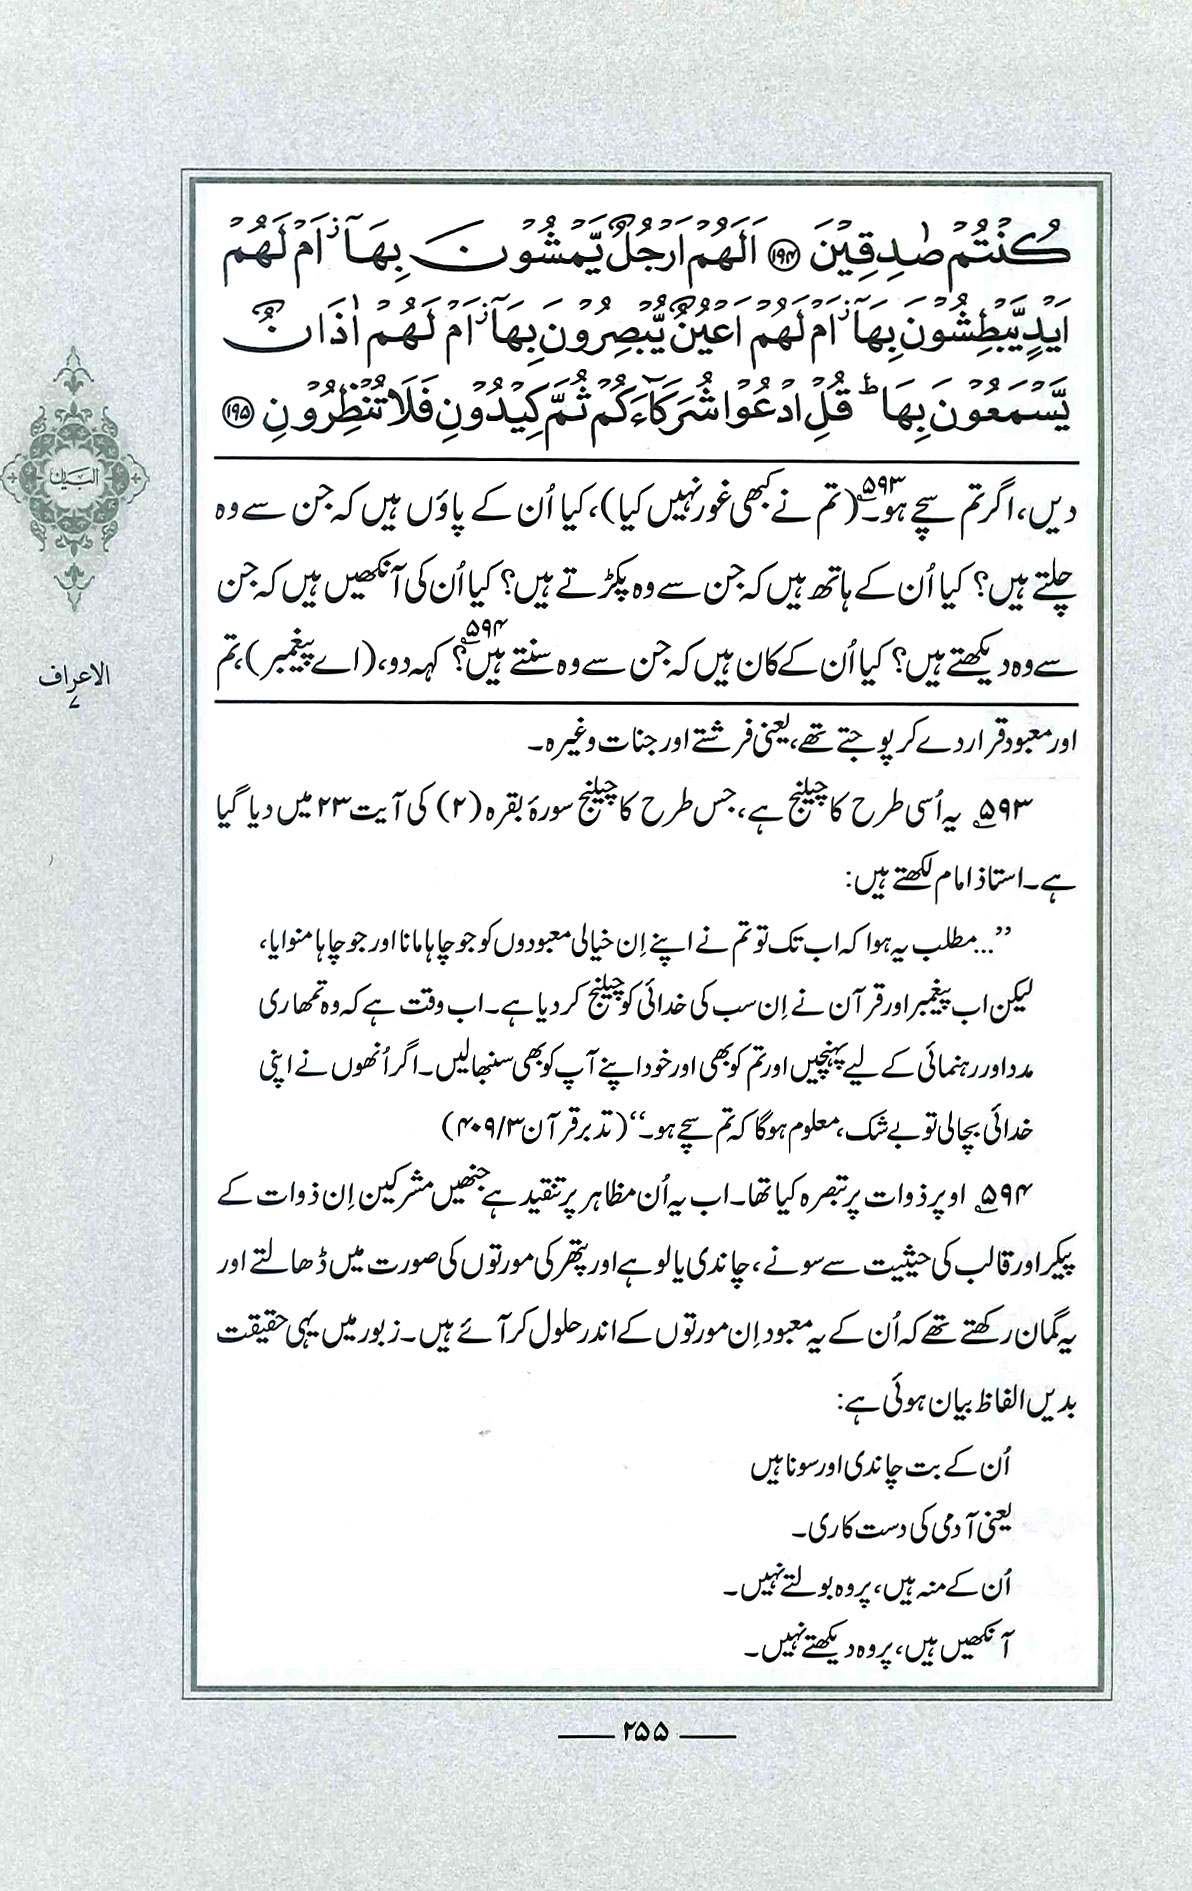 كُنْتُمْ صٰدِقِيْنَ ﴿۱۹۴﴾ اَلَهُمْ اَرْجُلٌ يَّمْشُوْنَ بِهَآ ز اَمْ لَهُمْ
اَيْدٍ يَّبْطِشُوْنَ بِهَآ ز اَمْ لَهُمْ اَعْيُنٌ يُّبْصِرُوْنَ بِهَآ ز اَمْ لَهُمْ اٰذَانٌ
يَّسْمَعُوْنَ بِهَا ط قُلِ ادْعُوْا شُرَكَآءَكُمْ ثُمَّ كِيْدُوْنِ فَلَا تُنْظِرُوْنِ ﴿۱۹۵﴾
دیں، اگر تم سچے ہو۔۵۹۳ (تم نے کبھی غور نہیں کیا)، کیا اُن کے پاؤں ہیں کہ جن سے وہ
چلتے ہیں؟ کیا اُن کے ہاتھ ہیں کہ جن سے وہ پکڑتے ہیں؟ کیا اُن کی آنکھیں ہیں کہ جن
سے وہ دیکھتے ہیں؟ کیا اُن کے کان ہیں کہ جن سے وہ سنتے ہیں؟۵۹۴ کہہ دو، (اے پیغمبر)، تم
البیان
الاعراف
۷
اور معبود قرار دے کر پوجتے تھے، یعنی فرشتے اور جنات وغیرہ۔
۵۹۳ یہ اُسی طرح کا چیلنج ہے، جس طرح کا چیلنج سورۂ بقرہ (۲) کی آیت ۲۳ میں دیا گیا
ہے۔ استاذ امام لکھتے ہیں:
”...مطلب یہ ہوا کہ اب تک تو تم نے اپنے اِن خیالی معبودوں کو جو چاہا مانا اور جو چاہا منوایا،
لیکن اب پیغمبر اور قرآن نے اِن سب کی خدائی کو چیلنج کر دیا ہے۔ اب وقت ہے کہ وہ تمھاری
مدد اور رہنمائی کے لیے پہنچیں اور تم کو بھی اور خود اپنے آپ کو بھی سنبھالیں۔ اگر اُنھوں نے اپنی
خدائی بچا لی تو بے شک، معلوم ہوگا کہ تم سچے ہو۔“ (تدبر قرآن ۳/ ۴۰۹)
۵۹۴ اوپر ذوات پر تبصرہ کیا تھا۔ اب یہ اُن مظاہر پر تنقید ہے جنھیں مشرکین اِن ذوات کے
پیکر اور قالب کی حیثیت سے سونے، چاندی یا لوہے اور پتھر کی مورتوں کی صورت میں ڈھالتے اور
یہ گمان رکھتے تھے کہ اُن کے یہ معبود اِن مورتوں کے اندر حلول کر آئے ہیں۔ زبور میں یہی حقیقت
بدیں الفاظ بیان ہوئی ہے:
اُن کے بت چاندی اور سونا ہیں
یعنی آدمی کی دست کاری۔
اُن کے منہ ہیں، پر وہ بولتے نہیں۔
آنکھیں ہیں، پر وہ دیکھتے نہیں۔
۲۵۵